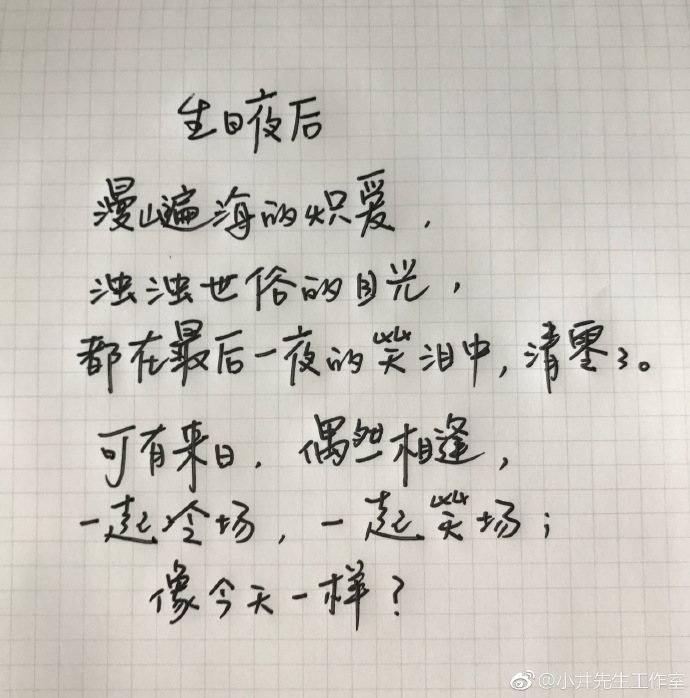 生日夜后
漫山遍海的炽爱，
浊浊世俗的目光，
都在最后一夜的笑泪中，清零了。
可有来日，偶然相逢，
一起冷场，一起笑场；
像今天一样？
@小井先生工作室